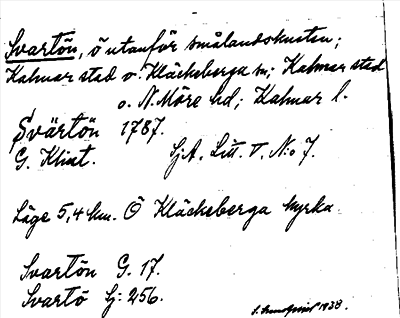 Svartön, ö utanför smålandskusten;
Kalmar stad o. Kläckeberga sn; Kalmar stad
o. N. Möre hd; Kalmar l.
Svärtön 1787.
G. Klint. Sj. A. Litt. V. N:o 7.
Läge 5,4 km. Ö Kläckeberga kyrka.
Svartön G. 17.
Svartö Sj: 256.
S. Lundqvist 1938.